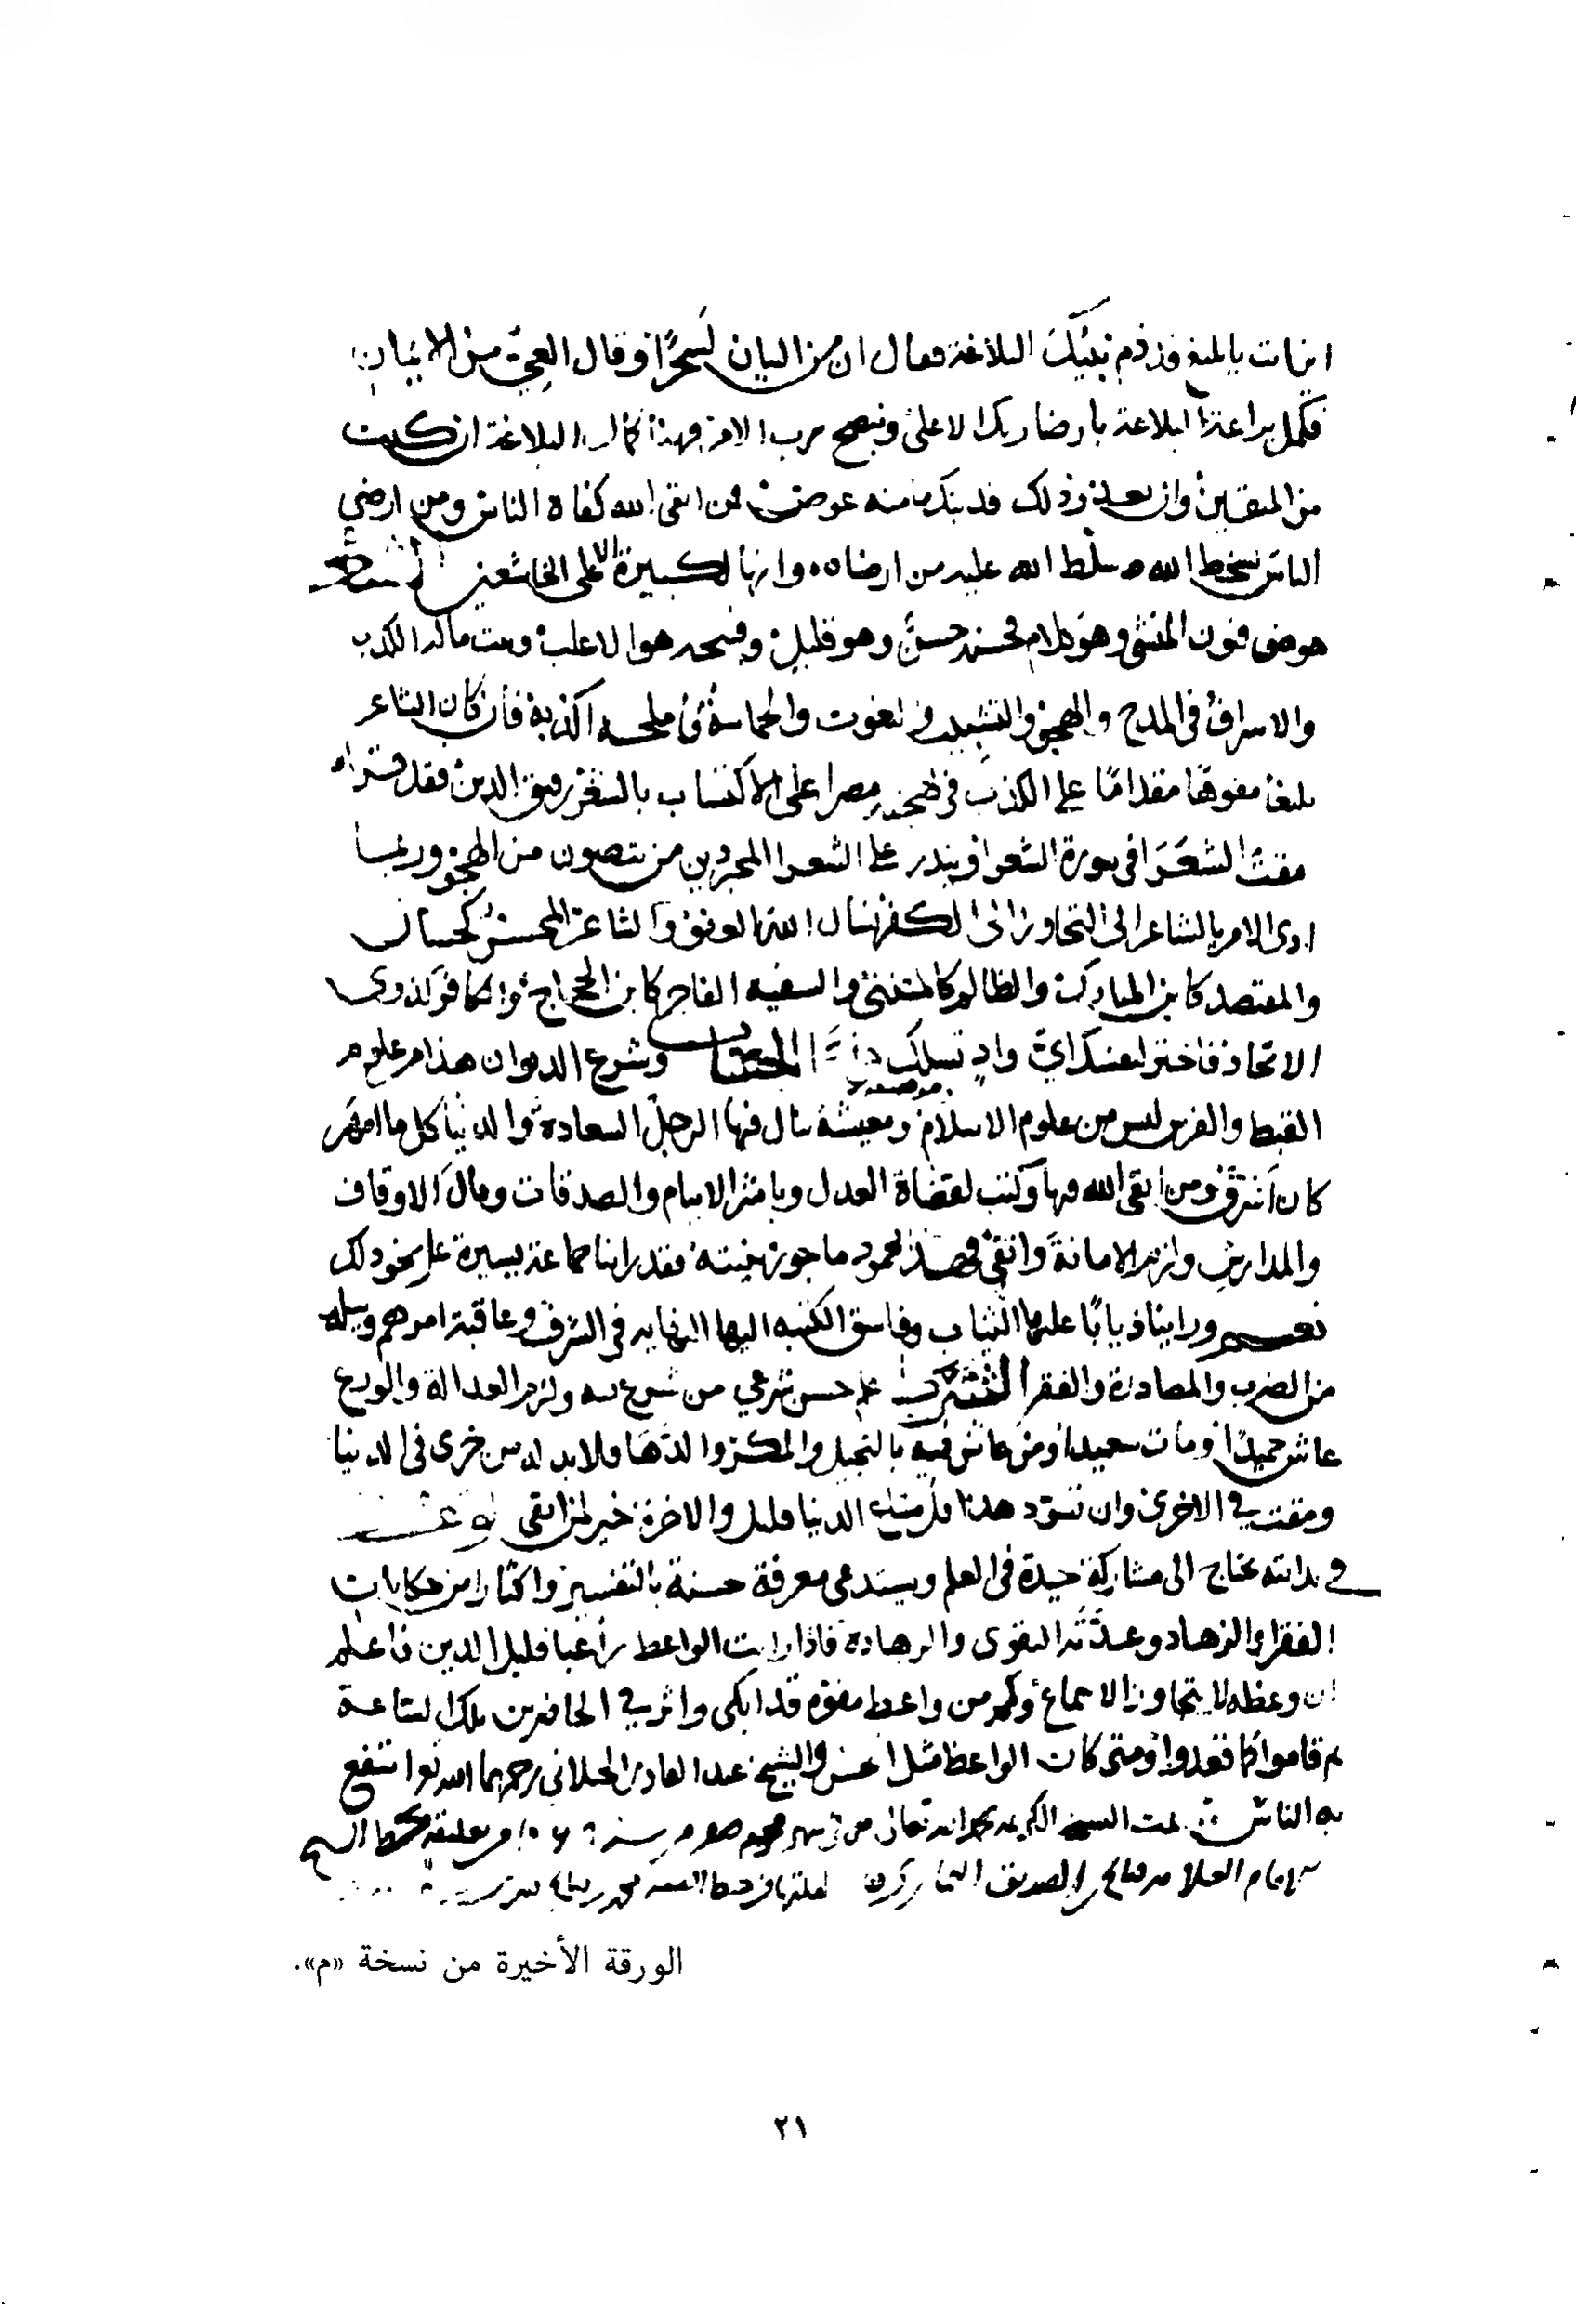 اين انت يا بليغ وقد ذم نبيك البلاغة فقال ان من البيان لسحرا وقال العي من الايمان
فكمل براعة البلاغة بارضا ربك الاعلى ونصح رب الامر فهذا كمال البلاغة ان كنت
من المتقين وان بعد ذلك فدينك ما منه عوض فمن اتقى الله كفاه الناس ومن ارضى
الناس بسخط الله سلط الله عليه من ارضاه وانها لكبيرة الا على الخاشعين الشعر
هو من فنون المنشى وهو كلام فحسنه حسن وهو قليل وقبيحه هو الاغلب وبيت ماله الكذب
والاسراف في المدح والهجو والتشبيه والنعوت والحماسة واملحه اكذبه فان كان الشاعر
بليغا مفوها مقداما على الكذب في لهجته مصرا على الاكتساب بالشعر رقيق الدين فقد قراه
مقت الشعرا في سورة الشعرا ويندر على الشعرا المجودين من يتصون من الهجو وربما
ادى الامر بالشاعر الى التجاوز الى الكفر نسال الله العفو والشاعر المحسن كحسان
والمقتصد كابن المبارك والظالم كالمتنبي والسفيه الفاجر كابن الحجاج والكافر كذوي
الاتحاد فاختر لنفسك اي واد تسلك الحساب وشرع الديوان هذا من علوم
القبط والفرس ليس من علوم الاسلام ومعيشة ينال فيها الرجل السعادة والدنيا كل ما امهر
كان اشرف ومن اتقى الله فيها وكتب لقضاة العدل وباشر الايتام والصدقات ومال الاوقاف
والمدارس ولزم الامانة واتقى فهذا محمود ماجور بنيته فقد راينا جماعة يسيرة على نحو ذلك
نعم وراينا ذيابا عليها الثياب وفاسق الكتبه اليها النهايه في السرف وعاقبة امرهم وبيله
من الضرب والمصادرة والفقر الشروط علم حسن شرعي من شرع فيه ولزم العدالة والورع
عاش حميدا ومات سعيدا ومن عاش فيه بالتحيل والمكر والدها فلا بد له من خزي في الدنيا
ومقت في الاخرى وان تسود هذا قل متاع الدنيا قليل والاخرة خير لمن اتقى الوعظ
في بداته يحتاج الى مشاركة جيدة في العلم ويستدعي معرفة حسنة بالتفسير واكثارا من حكايات
الفقرا والزهاد وعدته التقوى والزهادة فاذا رايت الواعظ راغبا قليل الدين فاعلم
ان وعظه لا يتجاوز الاسماع وكم من واعظ مفوه قد ابكى واثر في الحاضرين تلك الساعة
ثم قاموا كما قعدوا ومتى كان الواعظ مثل الحسن والشيخ عبد القادر الجيلاني رحمهما الله انتفع
به الناس تمت النسخه الكريمه بحمد الله تعالى من شهر سنة
الورقة الأخيرة من نسخة «م».
٢١